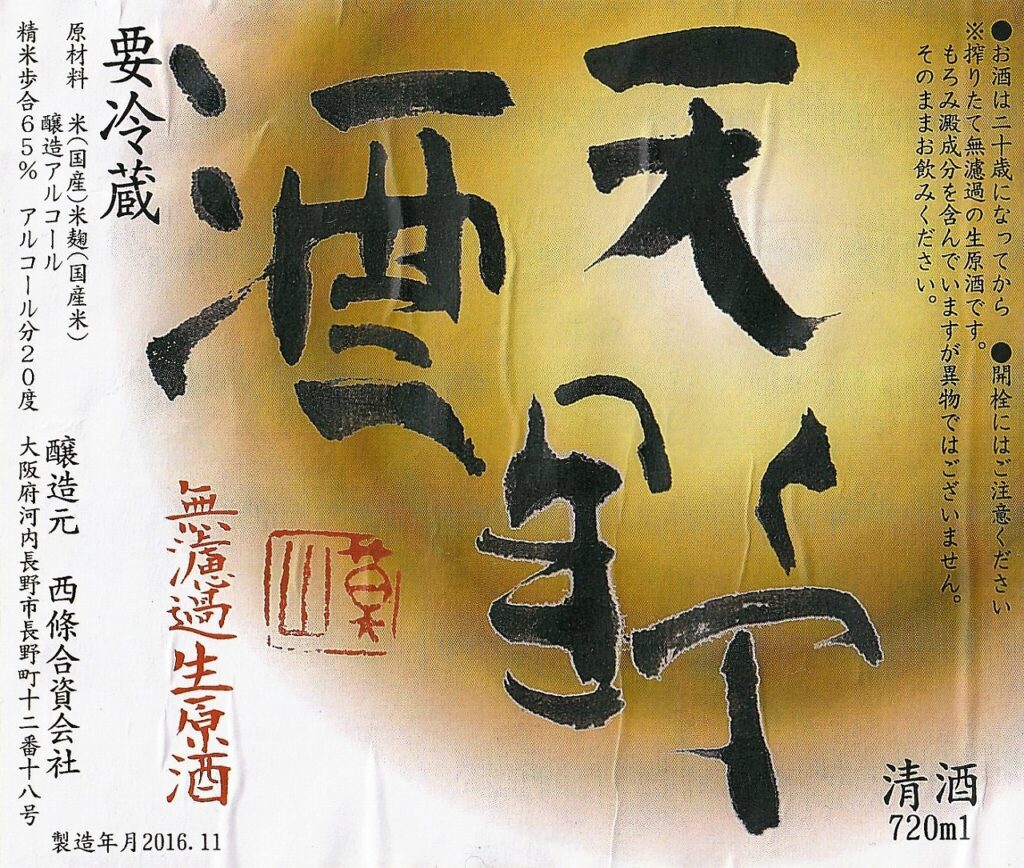 ●お酒は二十歳になってから ●開栓にはご注意ください
※搾りたて無濾過の生原酒です。
もろみ澱成分を含んでいますが異物ではございません。
そのままお飲みください。
天野
酒
清酒
720ml
無濾過生原酒
要冷蔵
原材料 米(国産)米麹(国産米)
醸造アルコール
精米歩合65% アルコール分20度
醸造元 西條合資会社
大阪府河内長野市長野町十二番十八号
製造年月2016.11